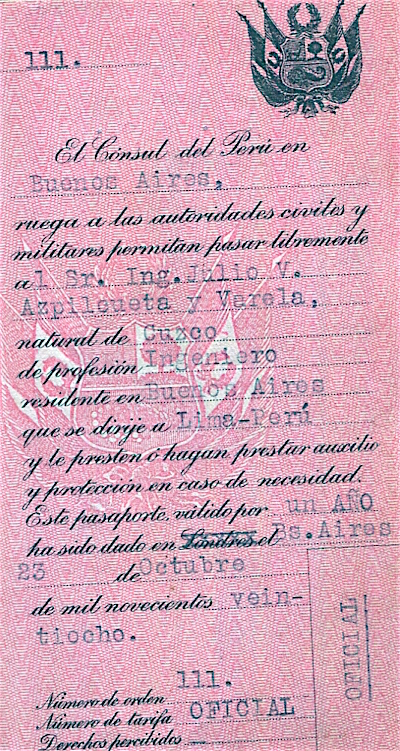 111.
El Cónsul del Perú en
Buenos Aires,
ruega a las autoridades civiles y
militares permitan pasar libremente
al Sr. Ing. Julio V.
Azpilcueta y Varela,
natural de Cuzco
de profesión Ingeniero
residente en Buenos Aires
que se dirije a Lima-Perú
y le presten ó hagan prestar auxilio
y protección en caso de necesidad.
Este pasaporte, válido por un AÑO
ha sido dado en Londres el Bs. Aires
23 de Octubre
de mil novecientos vein-
tiocho.
111.
Número de orden
Número de tarifa OFICIAL
Derechos percibidos —
OFICIAL